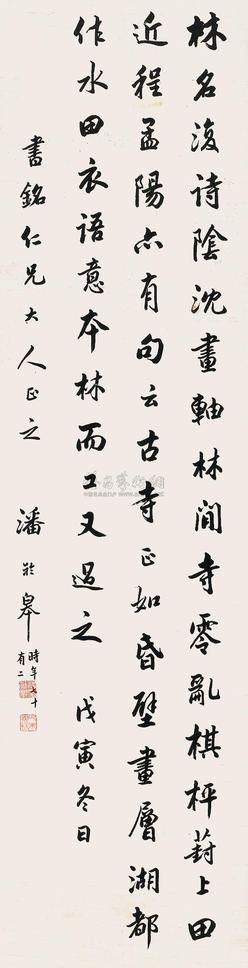 林名復诗陰沈畫軸林间寺零亂棋枰葑上田
近程孟陽亦有句云古寺正如昏壁畫層湖都
作水田衣语意本林而工又過之 戊寅冬日
書銘仁兄大人正之 潘龄皋時年七十有二